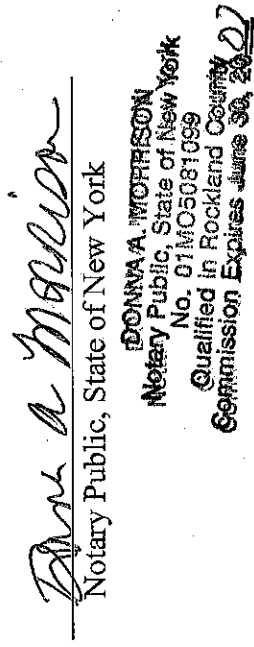 Donna A Morrison
Notary Public, State of New York
DONNA A. MORRISON
Notary Public, State of New York
No. 01MO5081099
Qualified in Rockland County
Commission Expires June 30, 20 07